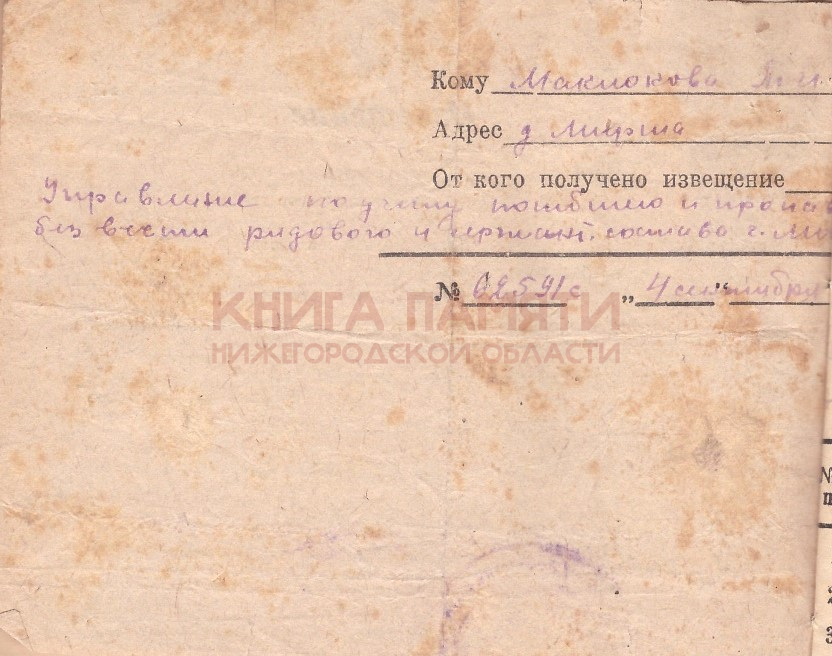 Кому Маклокова
Адрес д
От кого получено извещение
Управление по учету погибшего и пропав
без вести рядового и сержант. состава г.
№ 02591с „4 сентября"
КНИГА ПАМЯТИ
НИЖЕГОРОДСКОЙ ОБЛАСТИ
№
п
2
3